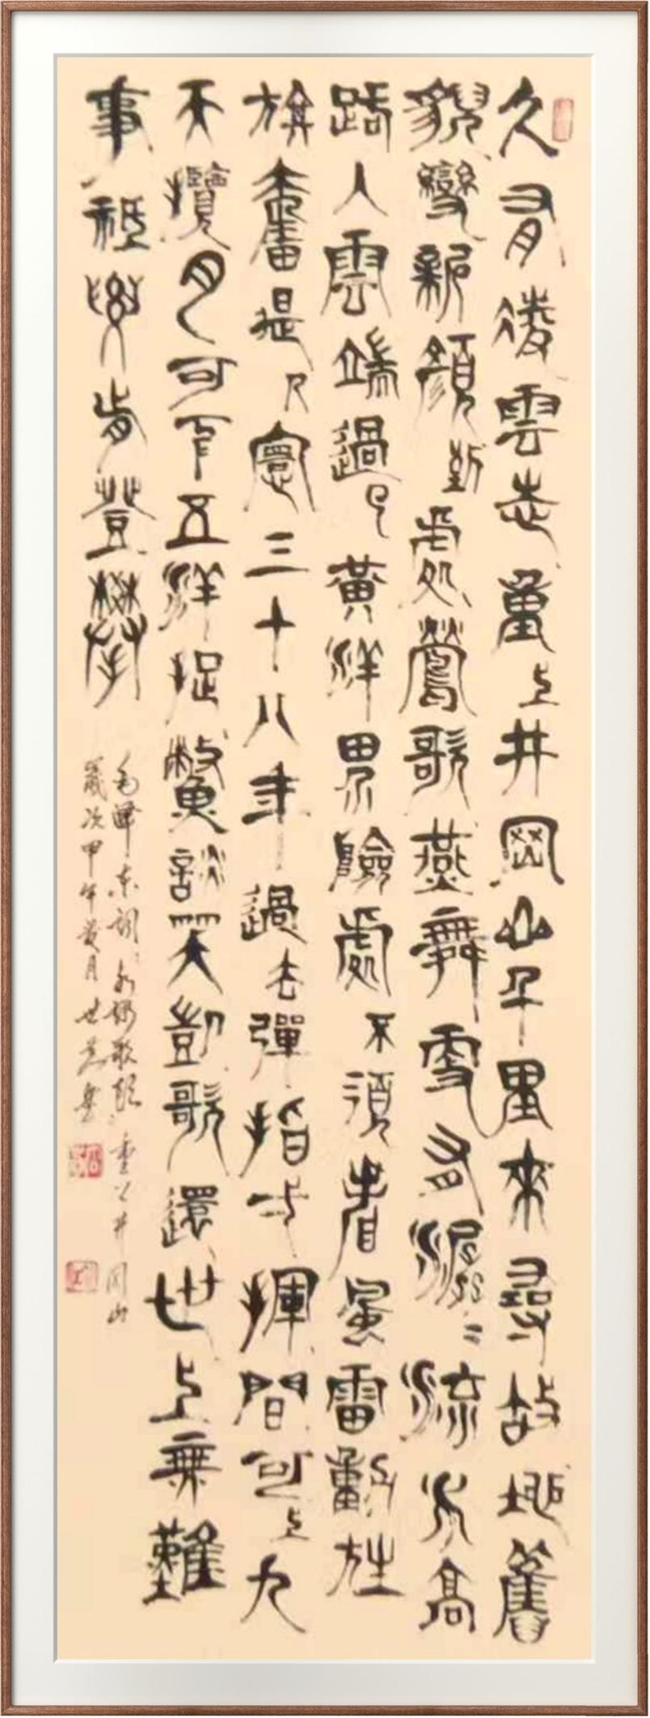 久有凌雲志重上井岡山千里來尋故地舊
貌變新顏到處鶯歌燕舞更有潺〻流水高
路入雲端過了黃洋界險處不須看風雷動旌
旗奮是人寰三十八年過去彈指一揮間可上九
天攬月可下五洋捉鱉談笑凱歌還世上無難
事衹要肯登攀
毛澤東詞水調歌頭重上井岡山
歲次甲午月世書